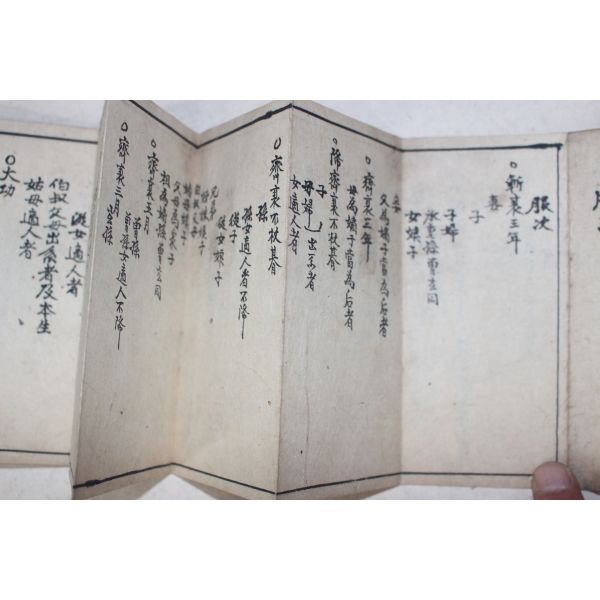 服次
○斬衰三年
妻
子
子婦
承重孫曾玄同
女嫁子
○齊衰三年
妾
父為嫡子當為后者
母為嫡子當為后者
○降齊衰不杖朞
子
婦 出系者
女適人者
○齊衰不杖朞
孫
孫女適人者不降
從子
從女嫁子
父母為衆子
祖為嫡孫曾玄同
○齊衰五月
曾孫
曾孫女適人不降
○齊衰三月
玄孫
○大功
從女適人者
伯叔父母出系者及本生
姑母適人者